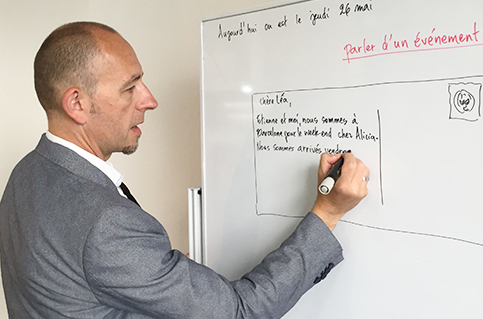 Aujourd'hui on est le jeudi 26 mai
Parler d'un événement
Chère Léa,
Etienne et moi, nous sommes à
Barcelone pour le week-end chez Alicia.
Nous sommes arrivés vendre